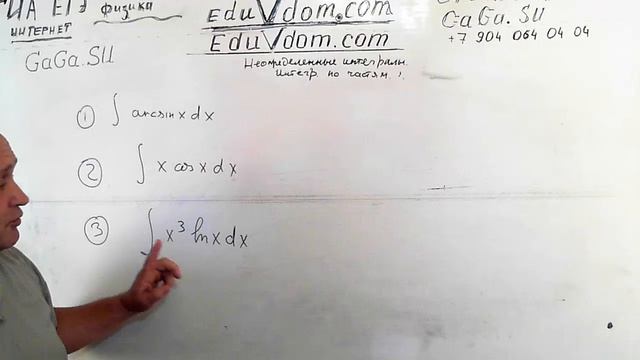 ИА ЕГЭ физика
ИНТЕРНЕТ
GaGa.SU
EduVdom.com
EduVdom.com
Неопределенные интегралы.
Интегр. по частям!
GaGa.SU
+7 904 064 04 04
① ∫ arcsin x dx
② ∫ x cos x dx
③ ∫ x³ ln x dx